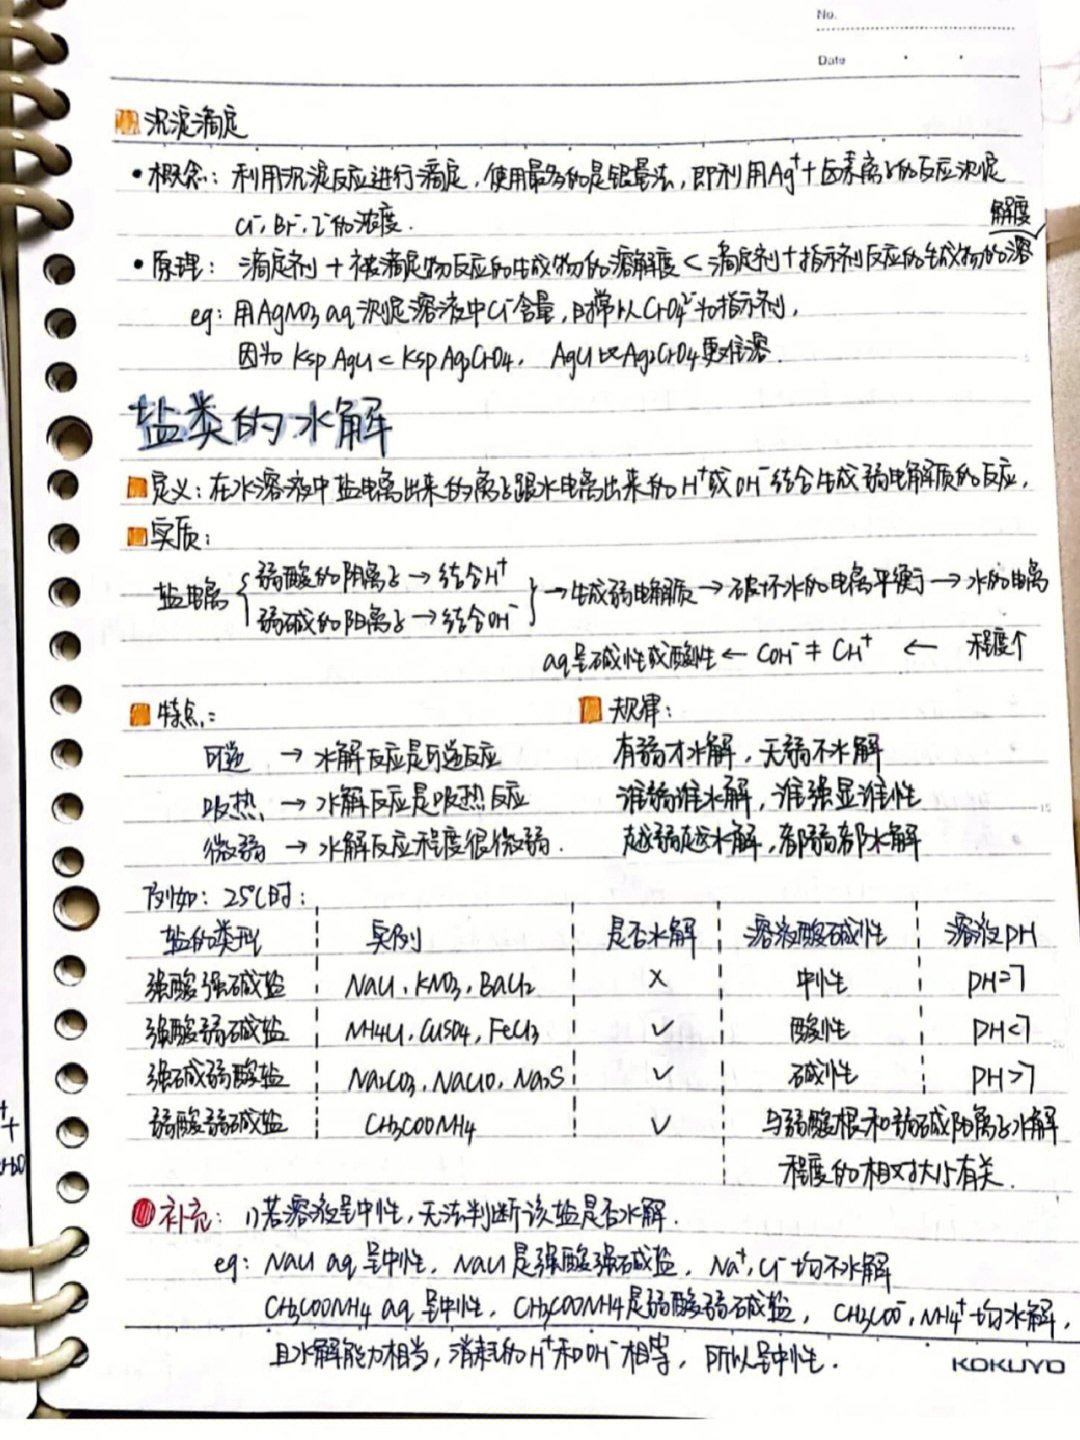 No.
Date
沉淀滴定
• 概念: 利用沉淀反应进行滴定, 使用最多的是银量法, 即利用Ag⁺+卤素离子的反应测定
Cl⁻, Br⁻, I⁻的浓度.
解度
• 原理: 滴定剂 + 被滴定物反应的生成物的溶解度 < 滴定剂+指示剂反应的生成物的溶
eg: 用AgNO₃ aq 测定溶液中Cl⁻含量, 时常以CrO₄²⁻为指示剂,
因为 Ksp AgCl < Ksp Ag₂CrO₄, AgCl比Ag₂CrO₄更难溶.
盐类的水解
定义: 在水溶液中盐电离出来的离子跟水电离出来的H⁺或OH⁻结合生成弱电解质的反应.
实质:
盐电离 { 弱酸的阴离子 → 结合H⁺
弱碱的阳离子 → 结合OH⁻ } → 生成弱电解质 → 破坏水的电离平衡 → 水的电离
aq呈碱性或酸性 ← COH⁻ ≠ CH⁺ ← 程度↑
特点:
规律:
可逆 → 水解反应是可逆反应
有弱才水解, 无弱不水解
吸热 → 水解反应是吸热反应
谁弱谁水解, 谁强显谁性
微弱 → 水解反应程度很微弱.
越弱越水解, 都弱都水解
例如: 25℃时:
盐的类型 实例 是否水解 溶液酸碱性 溶液PH
强酸强碱盐 NaCl, KNO₃, BaCl₂ × 中性 PH=7
强酸弱碱盐 NH₄Cl, CuSO₄, FeCl₃ ✓ 酸性 PH<7
强碱弱酸盐 Na₂CO₃, NaClO, Na₂S ✓ 碱性 PH>7
弱酸弱碱盐 CH₃COONH₄ ✓ 与弱酸根和弱碱阳离子水解
程度的相对大小有关.
补充: 1)若溶液呈中性, 无法判断该盐是否水解.
eg: NaCl aq 呈中性, NaCl是强酸强碱盐, Na⁺, Cl⁻均不水解
CH₃COONH₄ aq 呈中性, CH₃COONH₄是弱酸弱碱盐, CH₃COO⁻, NH₄⁺均水解,
且水解能力相当, 消耗的H⁺和OH⁻相等, 所以呈中性.
KOKUYO